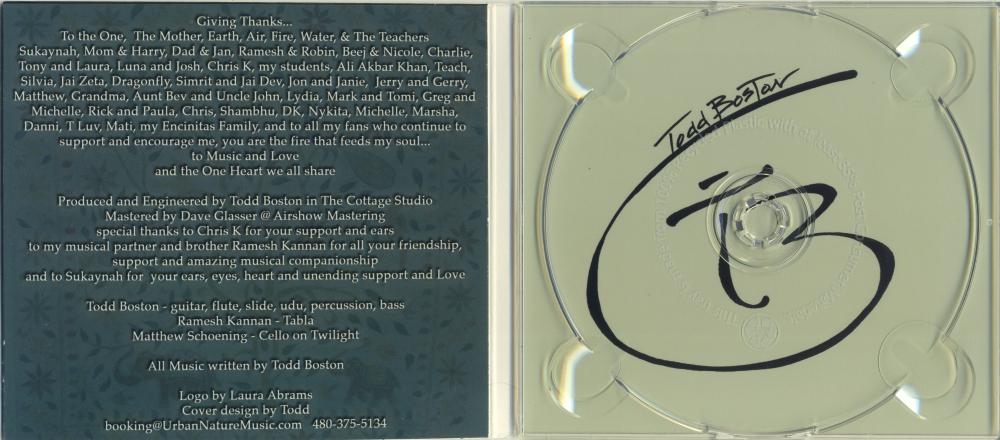 Giving Thanks...
To the One, The Mother, Earth, Air, Fire, Water, & The Teachers
Sukaynah, Mom & Harry, Dad & Jan, Ramesh & Robin, Beej & Nicole, Charlie,
Tony and Laura, Luna and Josh, Chris K, my students, Ali Akbar Khan, Teach,
Silvia, Jai Zeta, Dragonfly, Simrit and Jai Dev, Jon and Janie, Jerry and Gerry,
Matthew, Grandma, Aunt Bev and Uncle John, Lydia, Mark and Tomi, Greg and
Michelle, Rick and Paula, Chris, Shambhu, DK, Nykita, Michelle, Marsha,
Danni, T Luv, Mati, my Encinitas Family, and to all my fans who continue to
support and encourage me, you are the fire that feeds my soul...
to Music and Love
and the One Heart we all share
Produced and Engineered by Todd Boston in The Cottage Studio
Mastered by Dave Glasser @ Airshow Mastering
special thanks to Chris K for your support and ears
to my musical partner and brother Ramesh Kannan for all your friendship,
support and amazing musical companionship
and to Sukaynah for your ears, eyes, heart and unending support and Love
Todd Boston - guitar, flute, slide, udu, percussion, bass
Ramesh Kannan - Tabla
Matthew Schoening - Cello on Twilight
All Music written by Todd Boston
Logo by Laura Abrams
Cover design by Todd
booking@UrbanNatureMusic.com 480-375-5134
Todd Boston